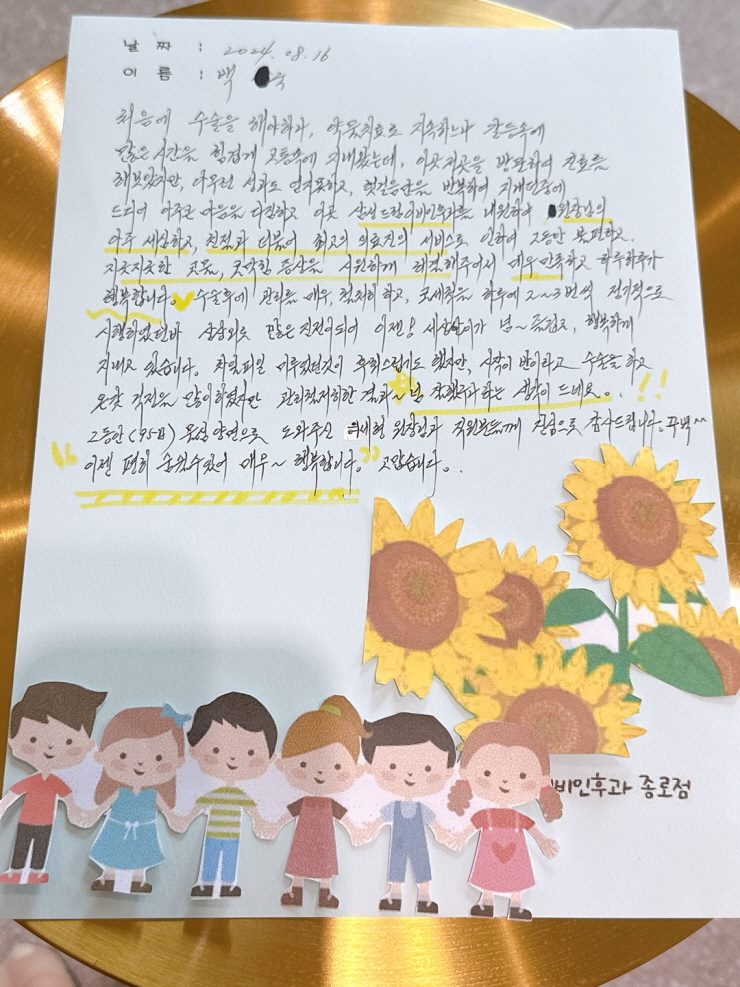 날 짜 : 2024. 08. 16
이 름 : 백 숙
처음에 수술을 해야하나, 약물치료로 지속하느냐 갈등속에
많은 시간을 힘겹게 고통속에 지내왔는데, 이곳저곳을 방문하여 진료를
해보았지만, 아무런 성과도 얻지못하고, 헛걸음만을 반복하며 지내던중에
드디어 아주큰 마음을 다짐하고 이곳 삼성드림이비인후과를 내원하여 원장님의
아주 세심하고, 친절과 더불어 최고의 의료진의 서비스로 인하여 그동안 불편하고.
지긋지긋한 고통, 꽉막힌 증상을 시원하게 해결해주어서 매우만족하고 하루하루가
행복합니다. 수술후에 관리를 매우, 철저히 하고, 코세척을 하루에 2~3번씩 정기적으로
시행하였던바 상상외로 많은 진전이되어 이젠! 세상살이가 넘~ 즐겁고, 행복하게
지내고 있습니다. 차일피일 미루었던것이 후회스럽기도 했지만, 시작이 반이라고 수술을 하고
온갖 걱정은 많이하였지만 관리철저히한 결과~ 넘 잘했구나 하는 생각이 드네요. !!
그동안 (95日) 물심 양면으로 도와주신 세현 원장님과 직원분들께 진심으로 감사드립니다. 꾸벅^^
"이젠 편히 숨쉴수있어 매우~ 행복합니다." 고맙습니다.
비인후과 종로점